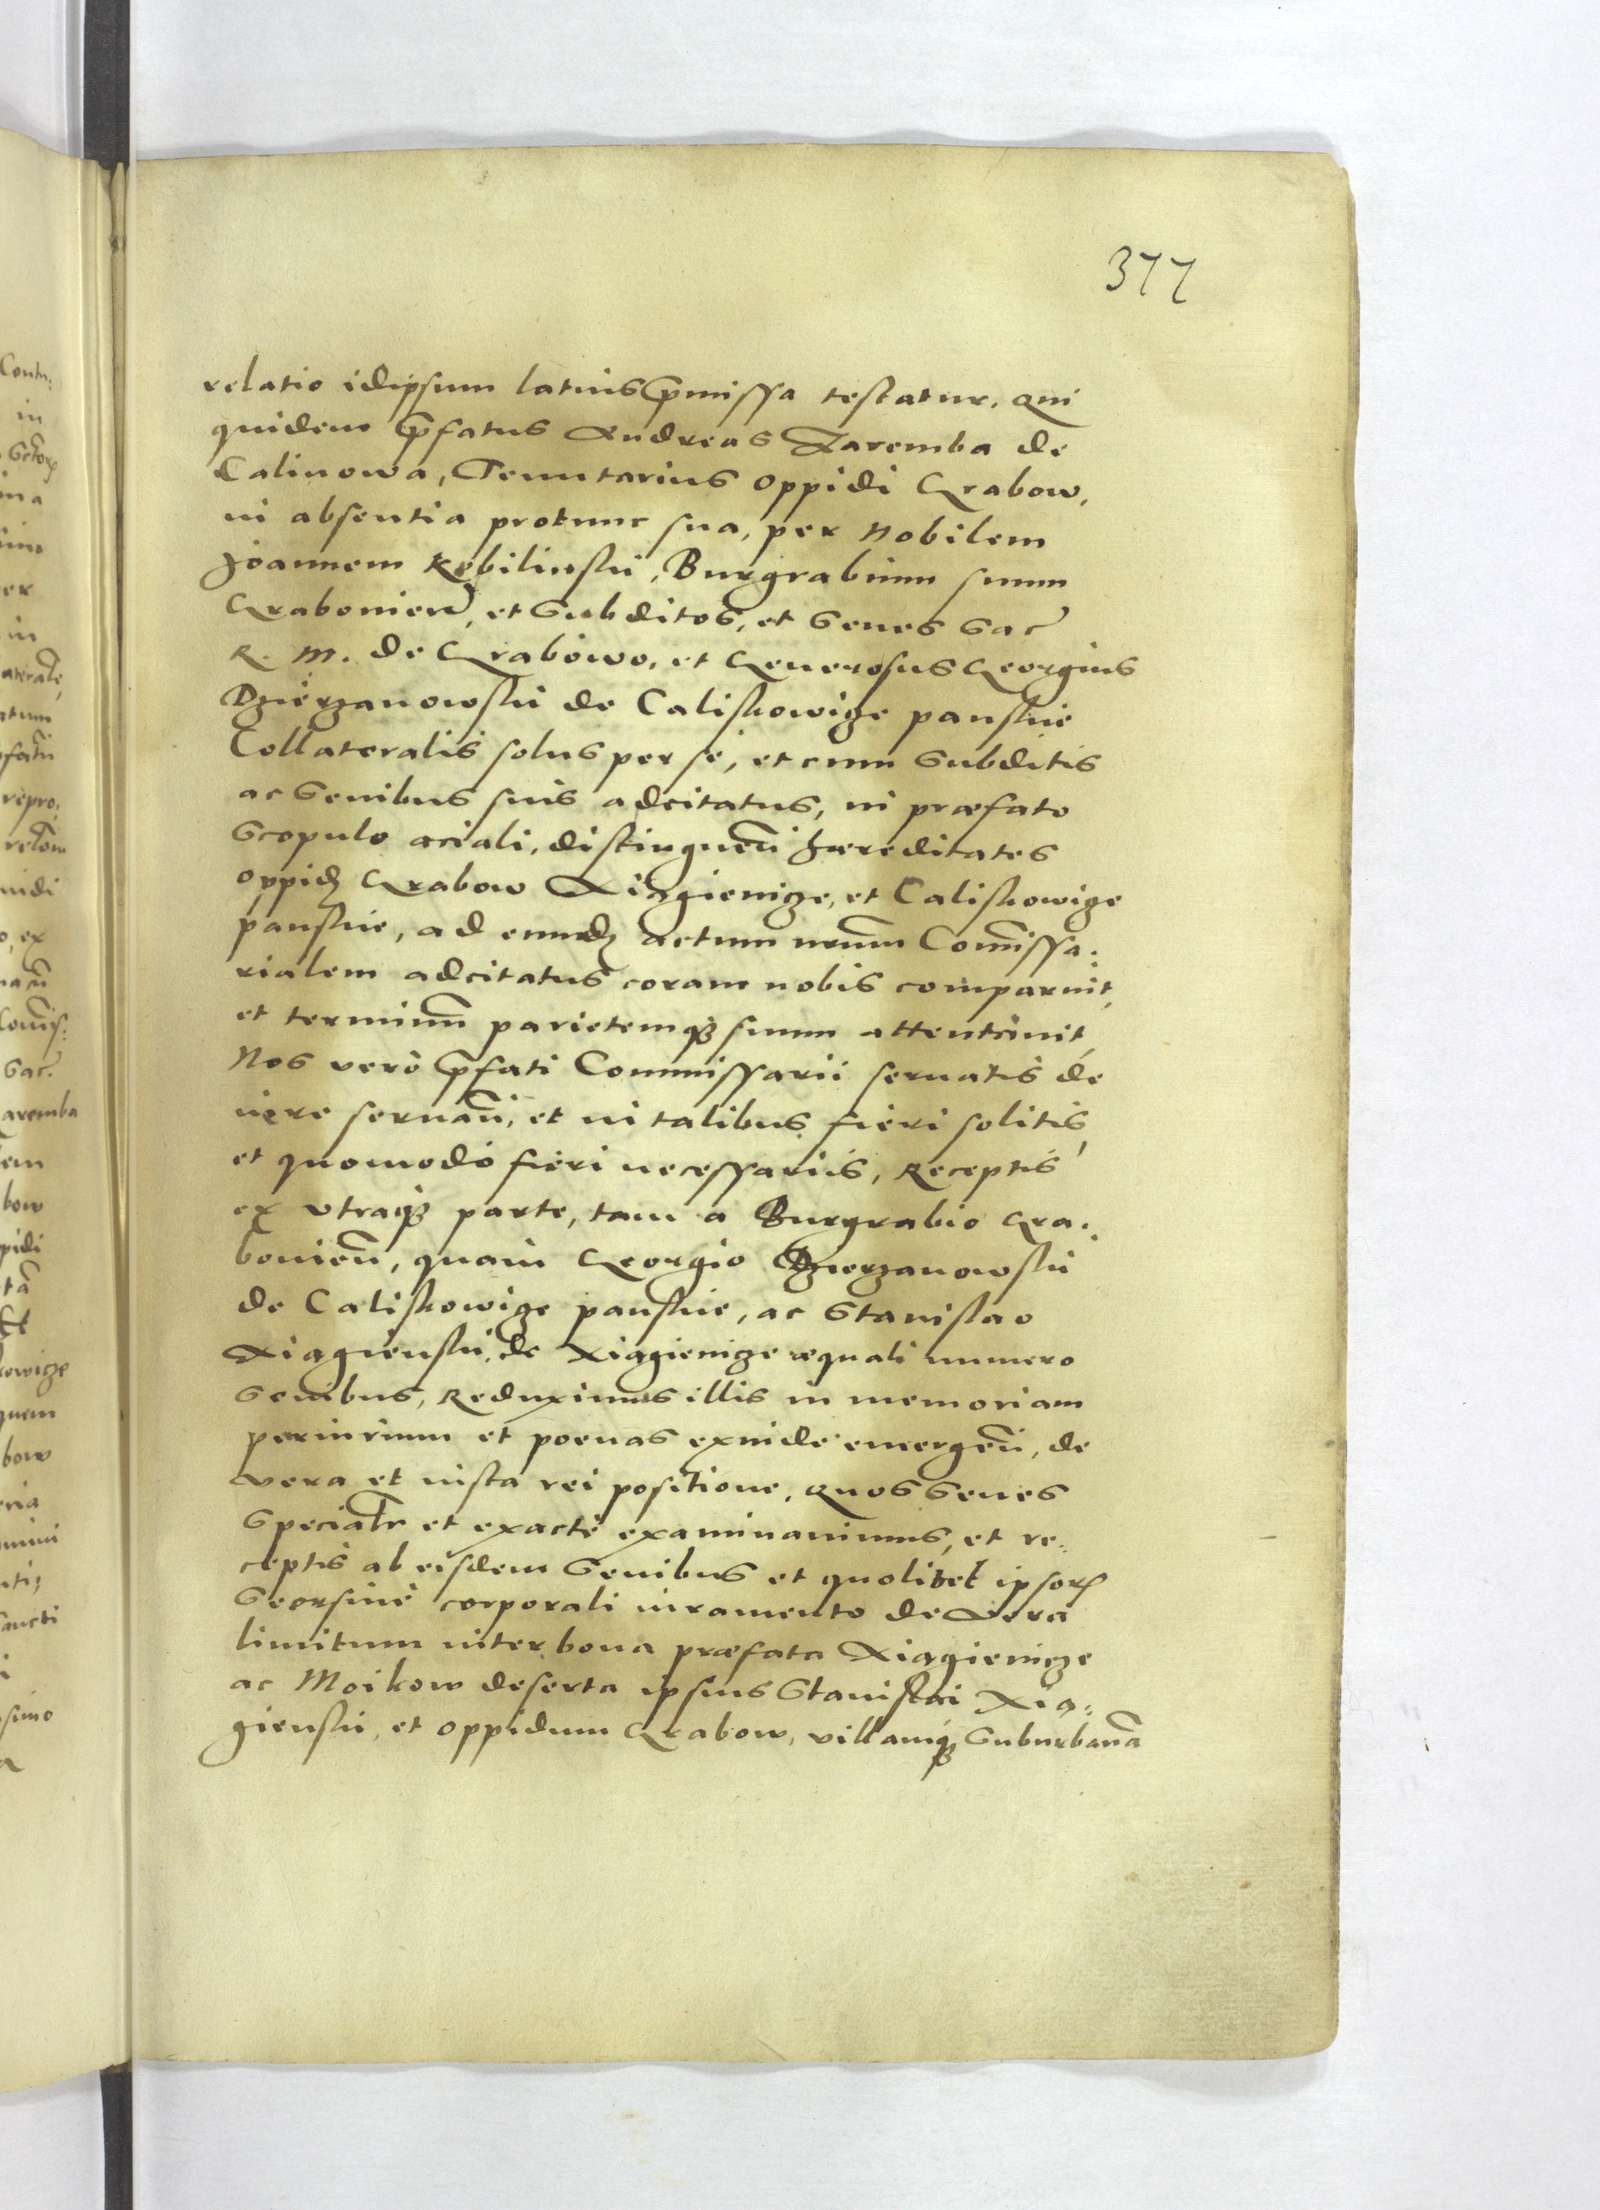 377
relatio idipsum latius p̄missa testatur. Qui
quidem p̄fatus Andreas Zaremba de
Calinowa, Tenutarius oppidi Grabow,
in absentia protunc sua, per Nobilem
Joannem Rębilinski, Burgrabium suum
Grabovien̄, et Subditos, et Senes Sac̄
R. M. de Grabowo, et Generosus Georgius
Dzierzanowski de Caliskowize panskie
Collateralis solus per se, et cum Subditis
ac Senibus suis adcitatus, in præfato
Scopulo aciali, distinguen̄ hæreditates
oppidi Grabow Xiązienicze, et Caliskowize
panskie, ad eundē actum n̄rum Com̄issa:
rialem adcitatus coram nobis comparuit,
et terminū parietemq̃ suum attentavit,
Nos verò p̄fati Commissarii seruatis de
iure seruan̄, et in talibus fieri solitis,
et quomodo fieri necessariis, Receptis
ex vtraq̃ parte, tam a Burgrabio Gra:
bovien̄, quam Georgio Dzierzanowski
de Caliskowize panskie, ac Stanislao
Xiągienski, de Xiągienicze æquali numero
Senibus, Reduximus illis in memoriam
periurium et poenas exinde emergen̄, de
vera et iusta rei positione, Quos Senes
Specialr̄ et exactè examinauimus, et re:
ceptis ab eisdem Senibus et quolibet ipsor̄
Seorsiuè corporali iuramento de vera
limitum inter bona præfata Xiągienicze
ac Moikow deserta ipsius Stanislai Xią:
gienski, et oppidum Grabow, villamq̃ Suburbanā